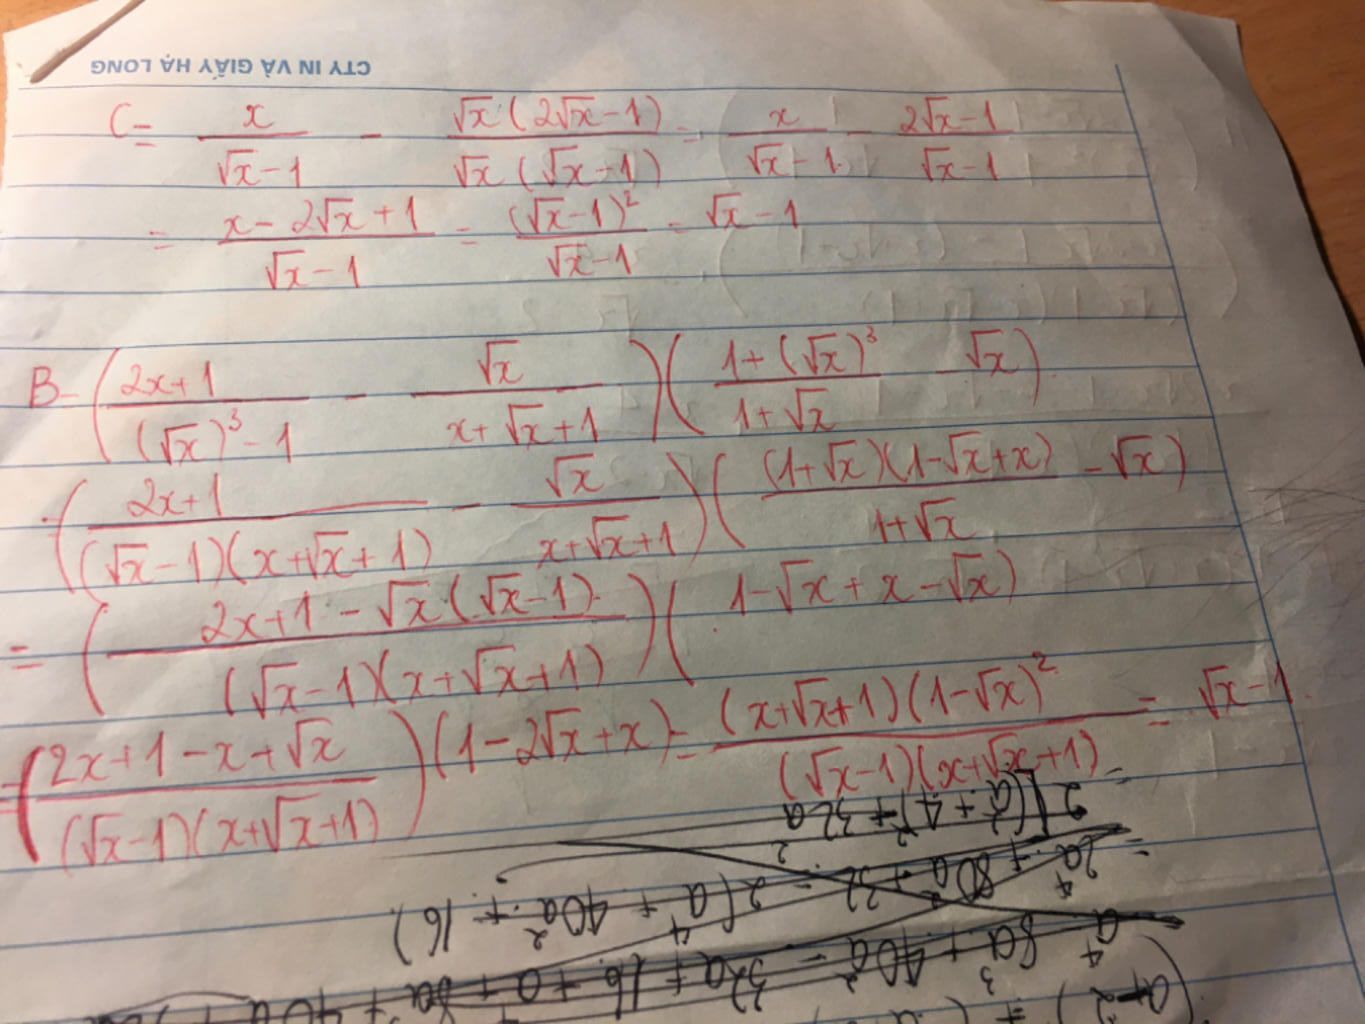 CTY IN VÀ GIẤY HẠ LONG
C = x/(√x - 1) - √x(2√x - 1)/(√x(√x - 1)) = x/(√x - 1) - (2√x - 1)/(√x - 1)
= (x - 2√x + 1)/(√x - 1) = (√x - 1)²/(√x - 1) = √x - 1
B = ((2x + 1)/((√x)³ - 1) - √x/(x + √x + 1))((1 + (√x)³)/(1 + √x) - √x)
= ((2x + 1)/((√x - 1)(x + √x + 1)) - √x/(x + √x + 1))((1 + √x)(1 - √x + x)/(1 + √x) - √x)
= ((2x + 1 - √x(√x - 1))/((√x - 1)(x + √x + 1)))(1 - √x + x - √x)
= ((2x + 1 - x + √x)/((√x - 1)(x + √x + 1)))(1 - 2√x + x) = (x + √x + 1)(1 - √x)²/((√x - 1)(x + √x + 1)) = √x - 1.
= 2a⁴ + 80a² + 32 = 2(a⁴ + 40a² + 16)